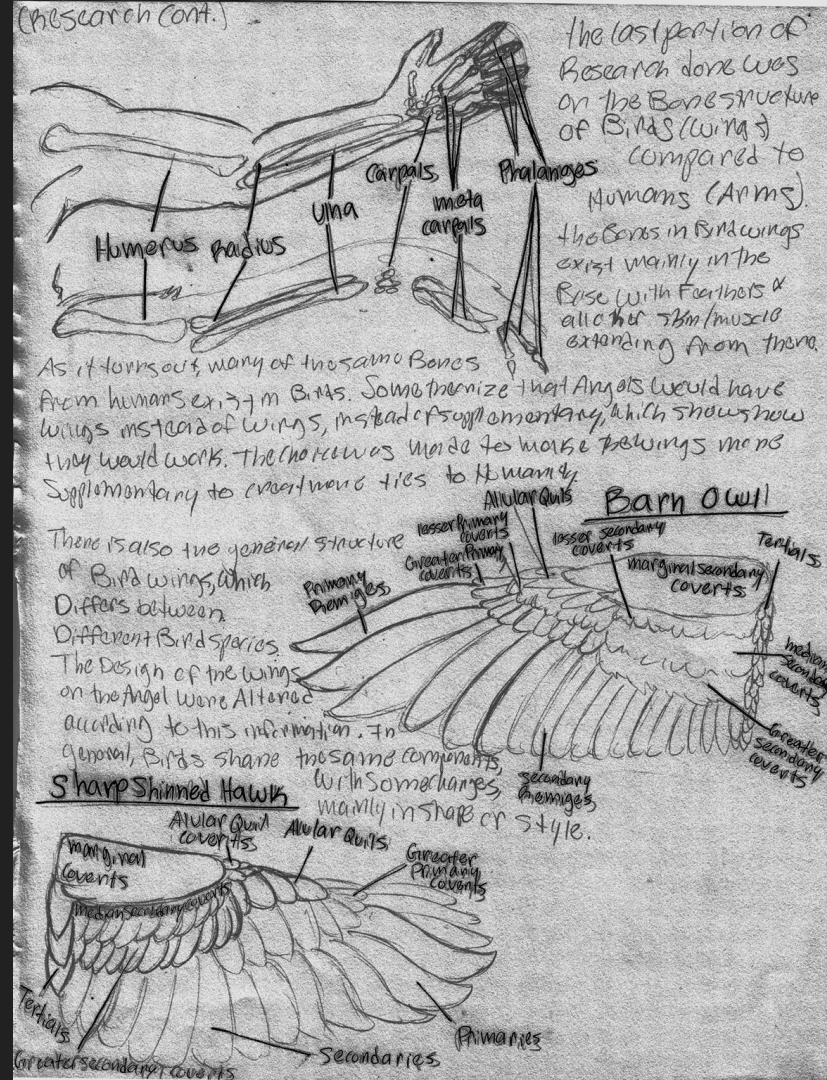 (Research Cont.)
The last portion of
Research done was
on the Bone structure
of Birds (wings)
compared to
Humans (Arms).
the Bones in Bird wings
exist mainly in the
Base with Feathers &
all other skin/muscle
extending from there.
Carpals
Phalanges
Ulna
meta
carpals
Humerus
Radius
As it turns out, many of the same Bones
from humans exist in Birds. Some theorize that Angels would have
wings instead of wings, instead of supplementary, which shows how
they would work. The choice was made to make the wings more
Supplementary to creat more ties to Humanity.
There is also the general structure
of Bird wings, which
Differs between
Different Bird species.
The Design of the wings
on the Angel were Altered
according to this information. In
general, Birds share the same components,
with some changes,
mainly in shape or style.
Barn Owl
Allular Quils
lesser Primary
coverts
Greater Primary
coverts
lesser secondary
coverts
Tertials
marginal secondary
coverts
Primary
Remiges
median
secondary
coverts
Greater
secondary
coverts
secondary
Remiges
Sharp Shinned Hawk
Alular Quil
coverts
Alular Quils
marginal
Coverts
Greater
Primary
Coverts
median secondary coverts
Tertials
Primaries
Secondaries
Greater secondary coverts